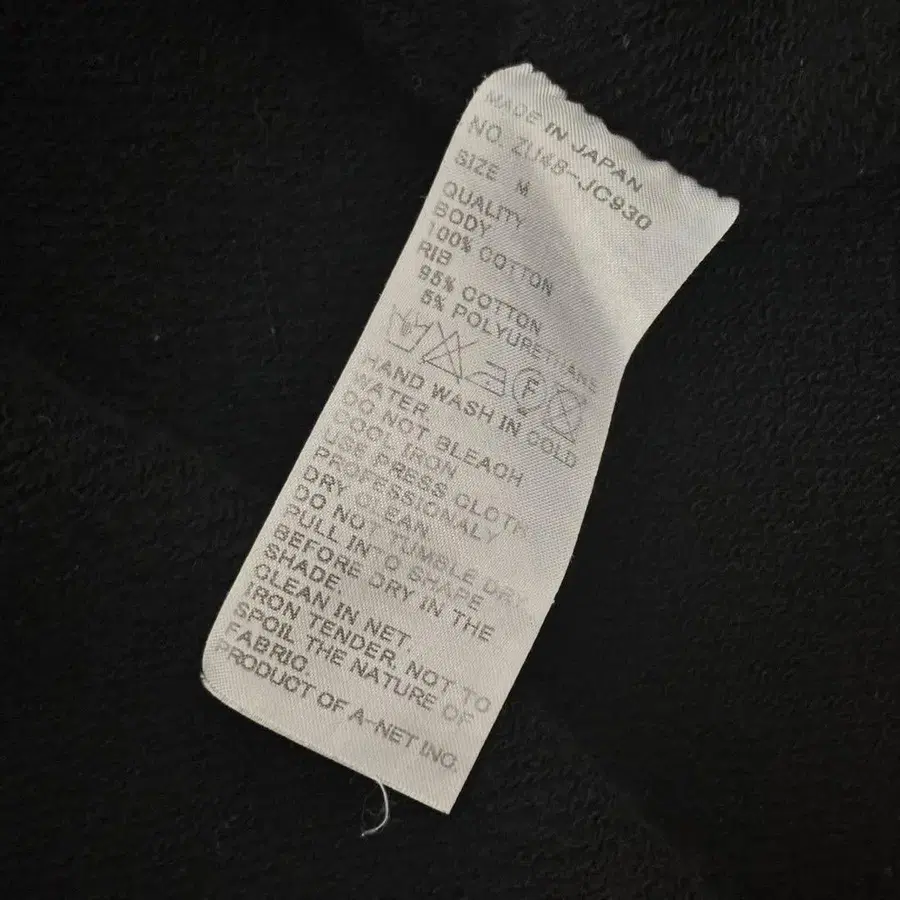 MADE IN JAPAN
NO. ZU48-JC930
SIZE M
QUALITY
BODY
100% COTTON
RIB
95% COTTON
5% POLYURETHANE
F
HAND WASH IN COLD
WATER
DO NOT BLEACH
COOL IRON
USE PRESS CLOTH
PROFESSIONALY
DRY CLEAN
DO NOT TUMBLE DRY.
PULL INTO SHAPE
BEFORE DRY IN THE
SHADE.
CLEAN IN NET.
IRON TENDER, NOT TO
SPOIL THE NATURE OF
FABRIC.
PRODUCT OF A-NET INC.